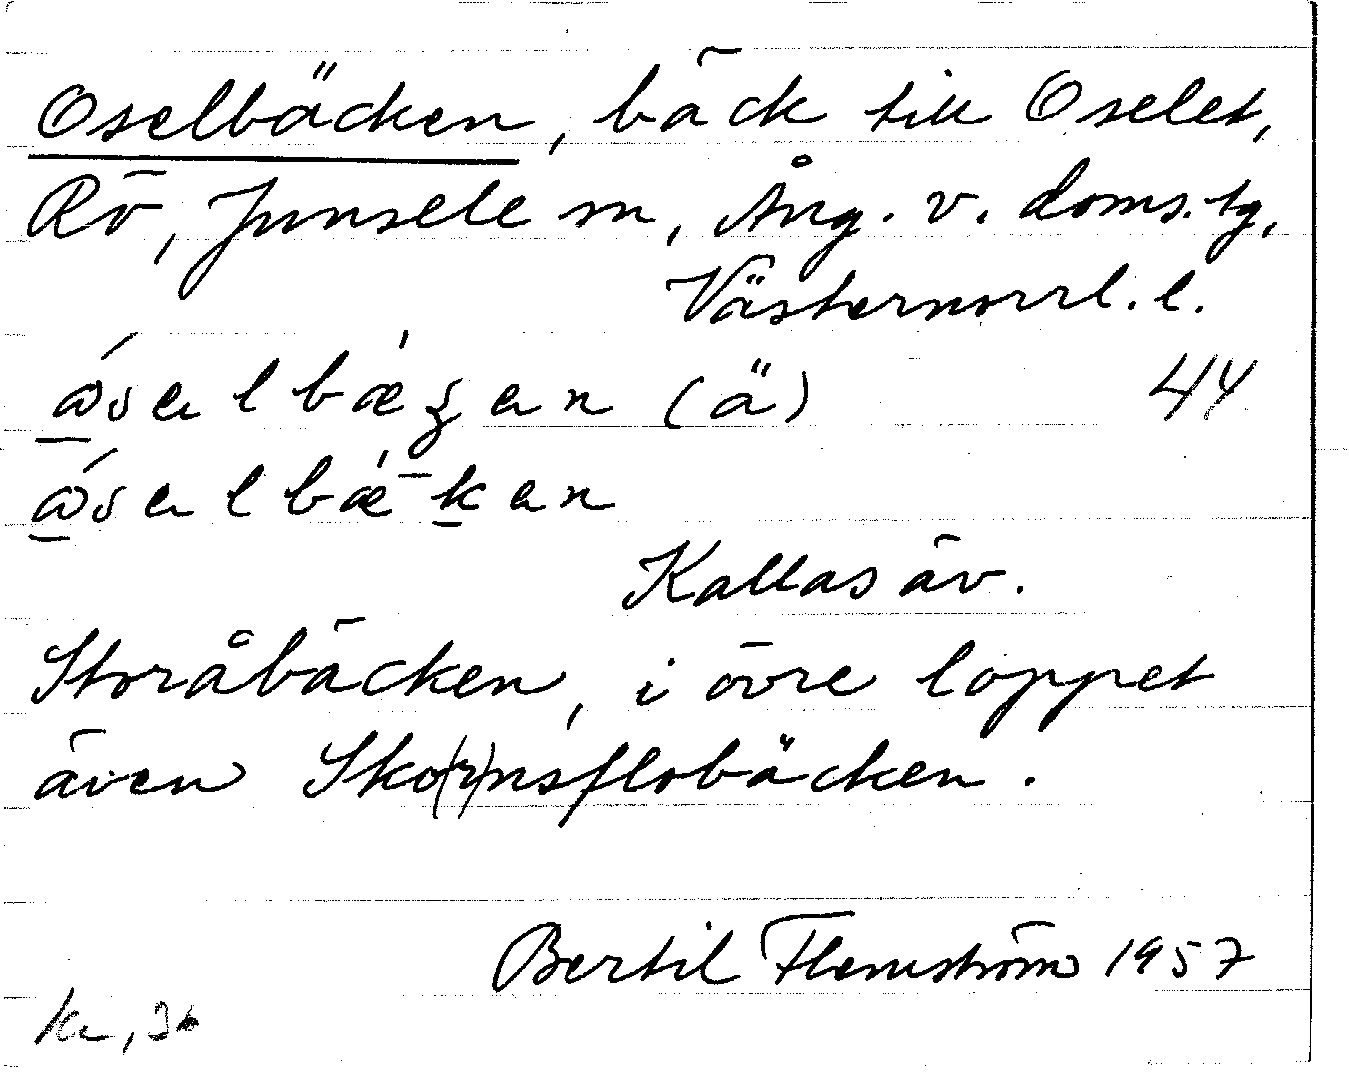 Oselbäcken, bäck till Oselet,
Rö, Junsele sn, Ång. v. doms.tg,
Västernorrl. l.
(ä) 44
Kallas äv.
Storåbäcken, i övre loppet
även Sko(r)nsflobäcken.
Bertil Flemström 1957